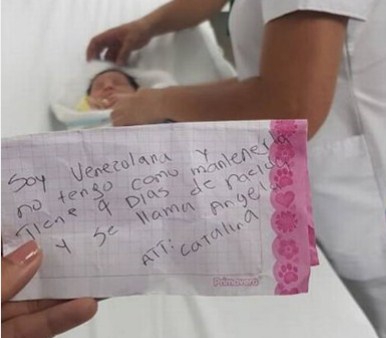 Soy Venezolana y
no tengo como mantenerla
Tiene 4 Dias de nacida
y se llama Angela
ATT: Catalina
Primavera